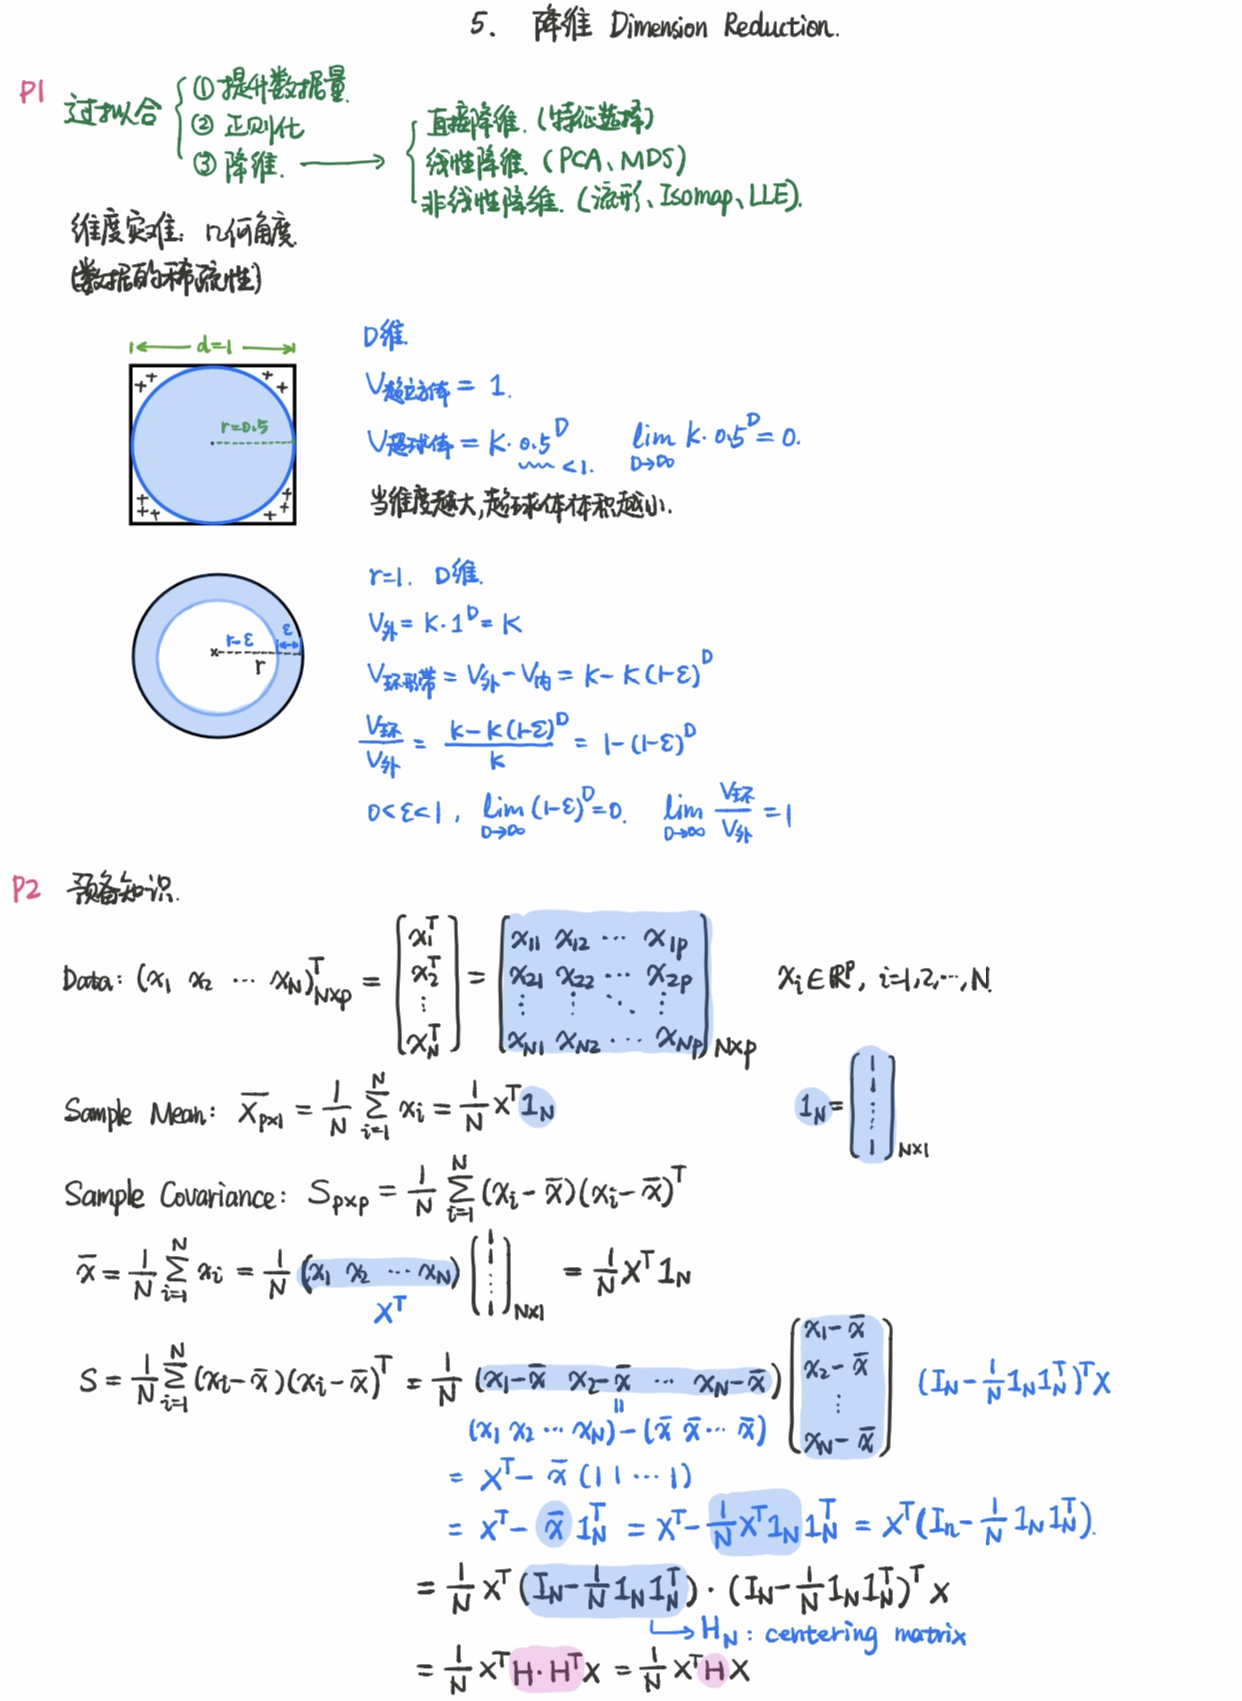 5. 降维 Dimension Reduction.
P1 过拟合 ① 提升数据量.
② 正则化
③ 降维. → 直接降维. (特征选择)
线性降维. (PCA、MDS)
非线性降维. (流形、Isomap、LLE).
维度灾难: 几何角度.
(数据的稀疏性)
d=1
r=0.5
D维.
V超立方体 = 1.
V超球体 = K · 0.5^D lim D→∞ K · 0.5^D = 0.
< 1.
当维度越大, 超球体体积越小.
r-ε ε
r
r=1. D维.
V外 = K · 1^D = K
V环形带 = V外 - V内 = K - K(1-ε)^D
V环/V外 = (K - K(1-ε)^D)/K = 1-(1-ε)^D
0<ε<1, lim D→∞ (1-ε)^D = 0. lim D→∞ V环/V外 = 1
P2 预备知识.
Data: (x₁ x₂ ⋯ x_N)^T_{N×p} = [x₁^T x₂^T ⋮ x_N^T] = [x₁₁ x₁₂ ⋯ x₁p x₂₁ x₂₂ ⋯ x₂p ⋮ ⋮ ⋱ ⋮ x_N1 x_N2 ⋯ x_Np]_{N×p} x_i ∈ ℝ^p, i=1,2,⋯,N.
Sample Mean: X̄_{p×1} = 1/N Σ_{i=1}^N x_i = 1/N X^T 1_N 1_N = [1 1 ⋮ 1]_{N×1}
Sample Covariance: S_{p×p} = 1/N Σ_{i=1}^N (x_i - x̄)(x_i - x̄)^T
x̄ = 1/N Σ_{i=1}^N x_i = 1/N (x₁ x₂ ⋯ x_N) [1 1 ⋮ 1]_{N×1} = 1/N X^T 1_N
X^T
S = 1/N Σ_{i=1}^N (x_i - x̄)(x_i - x̄)^T = 1/N (x₁-x̄ x₂-x̄ ⋯ x_N-x̄) [x₁-x̄ x₂-x̄ ⋮ x_N-x̄] (I_N - 1/N 1_N 1_N^T)^T X
=
(x₁ x₂ ⋯ x_N) - (x̄ x̄ ⋯ x̄)
= X^T - x̄ (1 1 ⋯ 1)
= X^T - x̄ 1_N^T = X^T - 1/N X^T 1_N 1_N^T = X^T (I_n - 1/N 1_N 1_N^T).
= 1/N X^T (I_N - 1/N 1_N 1_N^T) · (I_N - 1/N 1_N 1_N^T)^T X
→ H_N: centering matrix
= 1/N X^T H · H^T X = 1/N X^T H X